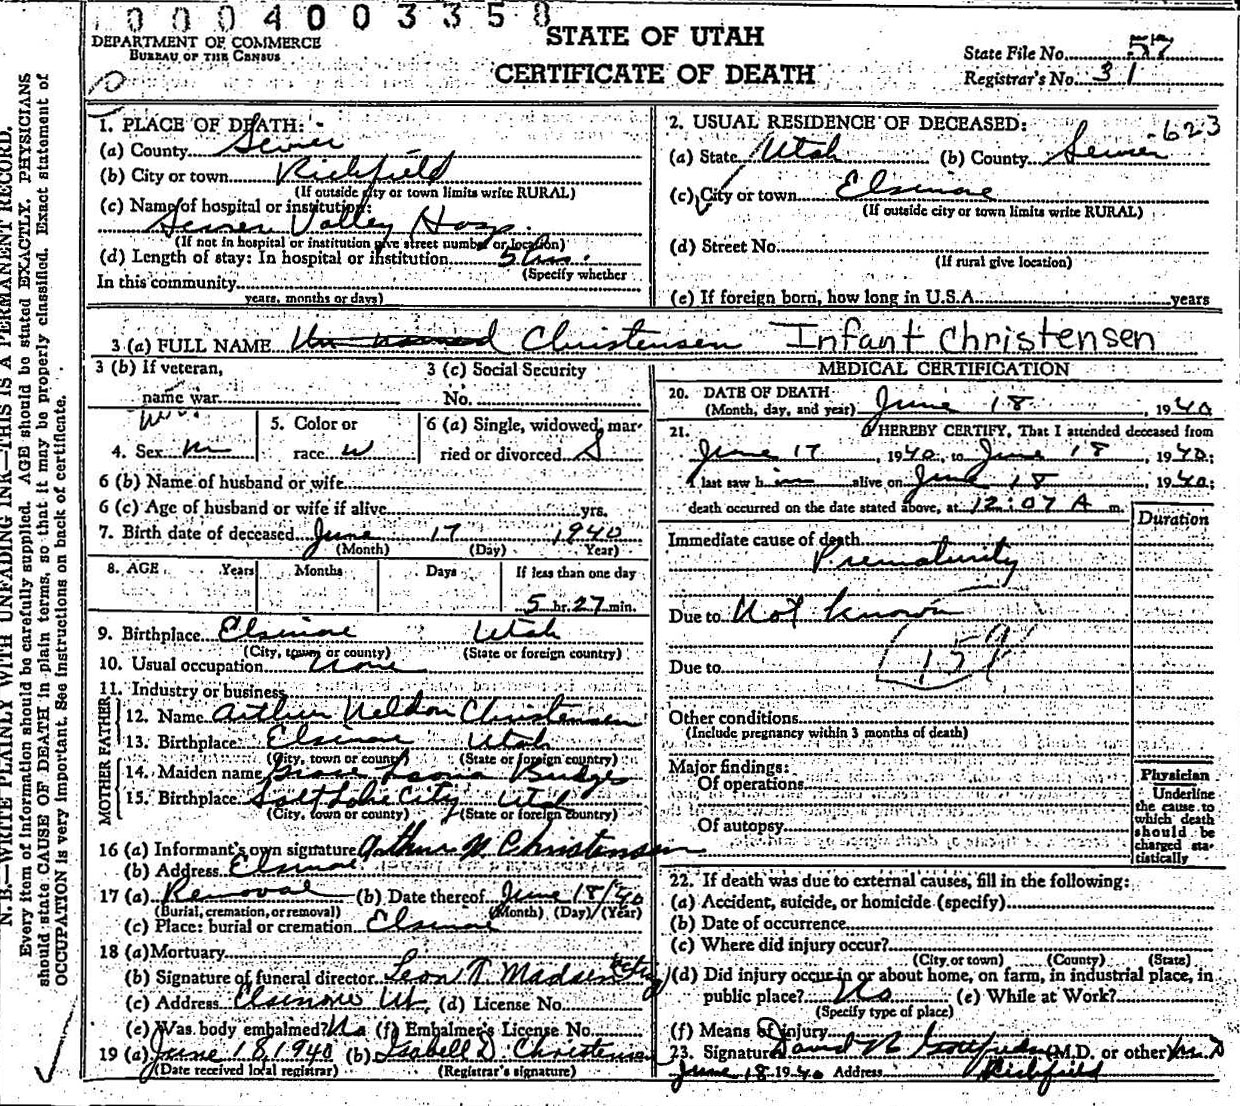 0004003358
DEPARTMENT OF COMMERCE
BUREAU OF THE CENSUS
STATE OF UTAH
CERTIFICATE OF DEATH
State File No. 57
Registrar's No. 31
1. PLACE OF DEATH:
(a) County Sevier
(b) City or town Richfield
(If outside city or town limits write RURAL)
(c) Name of hospital or institution:
Sevier Valley Hosp.
(If not in hospital or institution give street number or location)
(d) Length of stay: In hospital or institution 5 hrs.
(Specify whether
In this community
years, months or days)
2. USUAL RESIDENCE OF DECEASED:
623
(a) State Utah (b) County Sevier
(c) City or town Elsinore
(If outside city or town limits write RURAL)
(d) Street No.
(If rural give location)
(e) If foreign born, how long in U.S.A. years
3 (a) FULL NAME Un named Christensen Infant Christensen
3 (b) If veteran,
name war
3 (c) Social Security
No.
4. Sex M
5. Color or
race W
6 (a) Single, widowed, mar-
ried or divorced S
6 (b) Name of husband or wife
6 (c) Age of husband or wife if alive yrs.
7. Birth date of deceased June 17 1940
(Month) (Day) Year)
8. AGE Years Months Days If less than one day
5 hr. 27 min.
9. Birthplace Elsinore Utah
(City, town or county) (State or foreign country)
10. Usual occupation None
11. Industry or business
FATHER
12. Name Arthur Neldon Christensen
13. Birthplace Elsinore Utah
(City, town or county) (State or foreign country)
MOTHER
14. Maiden name Grace Budge
15. Birthplace Salt Lake City Utah
(City, town or county) (State or foreign country)
16 (a) Informant's own signature Arthur N. Christensen
(b) Address Elsinore
17 (a) Removal (b) Date thereof June 18/40
(Burial, cremation, or removal) (Month) (Day) (Year)
(c) Place: burial or cremation Elsinore
18 (a) Mortuary
(b) Signature of funeral director Leon N. Madsen
(c) Address Elsinore Ut. (d) License No.
(e) Was body embalmed? No (f) Embalmer's License No.
19 (a) June 18, 1940 (b) Isabell D. Christensen
(Date received local registrar) (Registrar's signature)
MEDICAL CERTIFICATION
20. DATE OF DEATH
(Month, day, and year) June 18, 1940
21. I HEREBY CERTIFY, That I attended deceased from
June 17, 1940, to June 18, 1940;
I last saw him alive on June 18, 1940;
death occurred on the date stated above, at 12:07 A m.
Duration
Immediate cause of death
Prematurity
Due to Not known
159
Due to
Other conditions
(Include pregnancy within 3 months of death)
Major findings:
Of operations
Of autopsy
Physician
Underline
the cause to
which death
should be
charged sta-
tistically
22. If death was due to external causes, fill in the following:
(a) Accident, suicide, or homicide (specify)
(b) Date of occurrence
(c) Where did injury occur?
(City or town) (County) (State)
(d) Did injury occur in or about home, on farm, in industrial place, in
public place? No (e) While at Work?
(Specify type of place)
(f) Means of injury
23. Signature David N Gottfredson (M.D. or other) M D
June 18 1940 Address Richfield
N. B.—WRITE PLAINLY WITH UNFADING INK—THIS IS A PERMANENT RECORD.
Every item of information should be carefully supplied. AGE should be stated EXACTLY. PHYSICIANS
should state CAUSE OF DEATH in plain terms, so that it may be properly classified. Exact statement of
OCCUPATION is very important. See instructions on back of certificate.